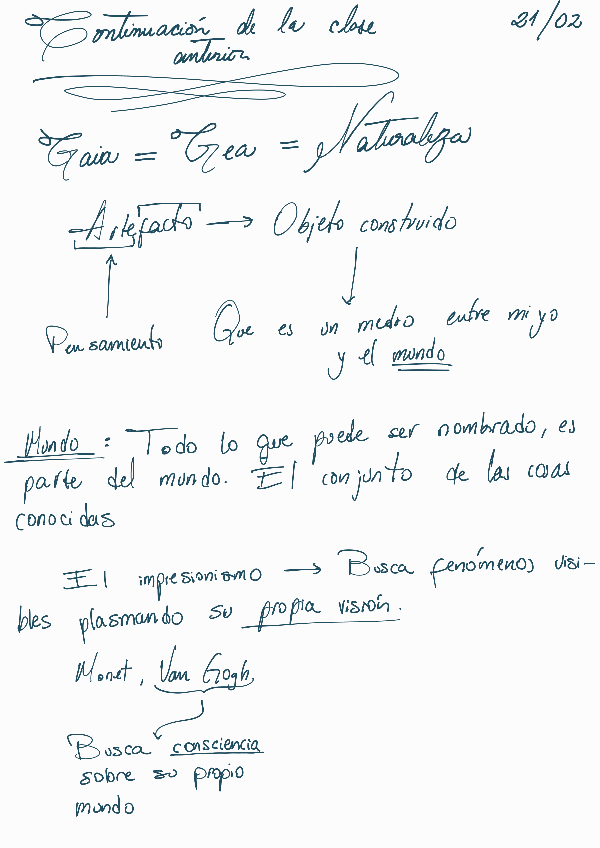 Continuación de la clase 21/02
anterior
Gaia = Gea = Naturaleza
Artefacto → Objeto construido
Pensamiento Que es un medio entre mi yo
y el mundo
Mundo: Todo lo que puede ser nombrado, es
parte del mundo. El conjunto de las cosas
conocidas
El impresionismo → Busca fenómenos visi-
bles plasmando su propia visión.
Monet, Van Gogh,
Busca consciencia
sobre su propio
mundo